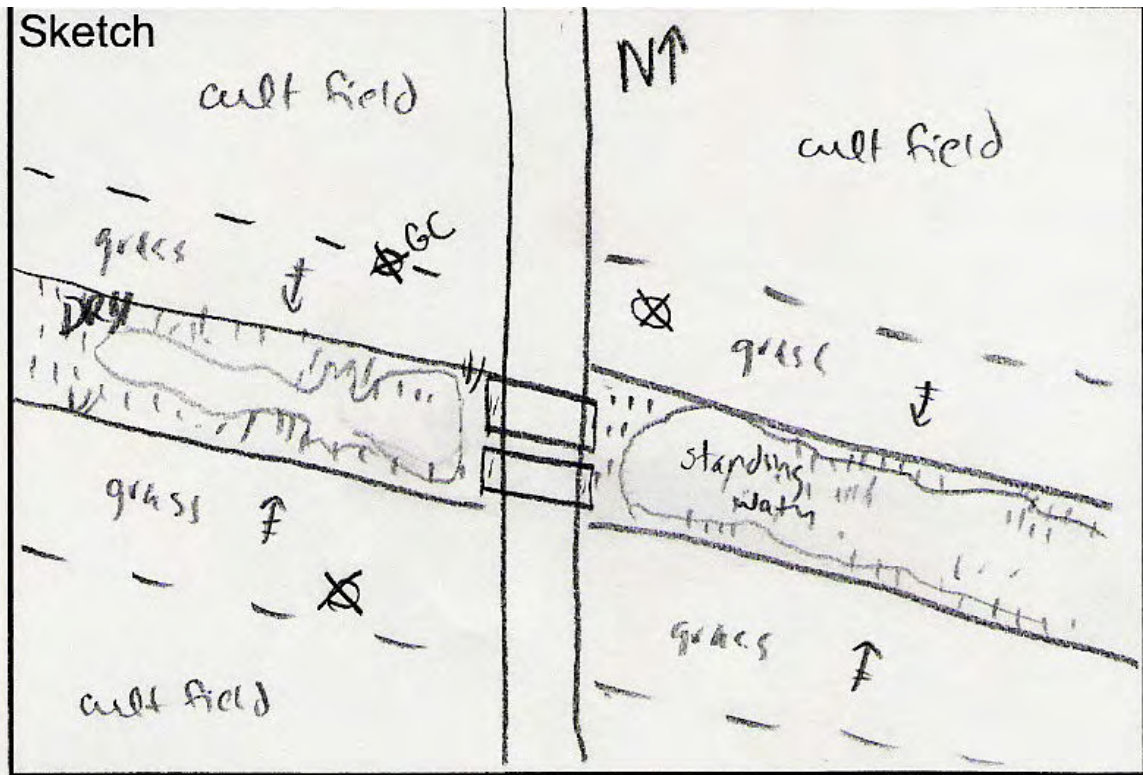 Sketch
N↑
cult field
cult field
GC
grass
DRY
grass
standing
water
grass
grass
cult field